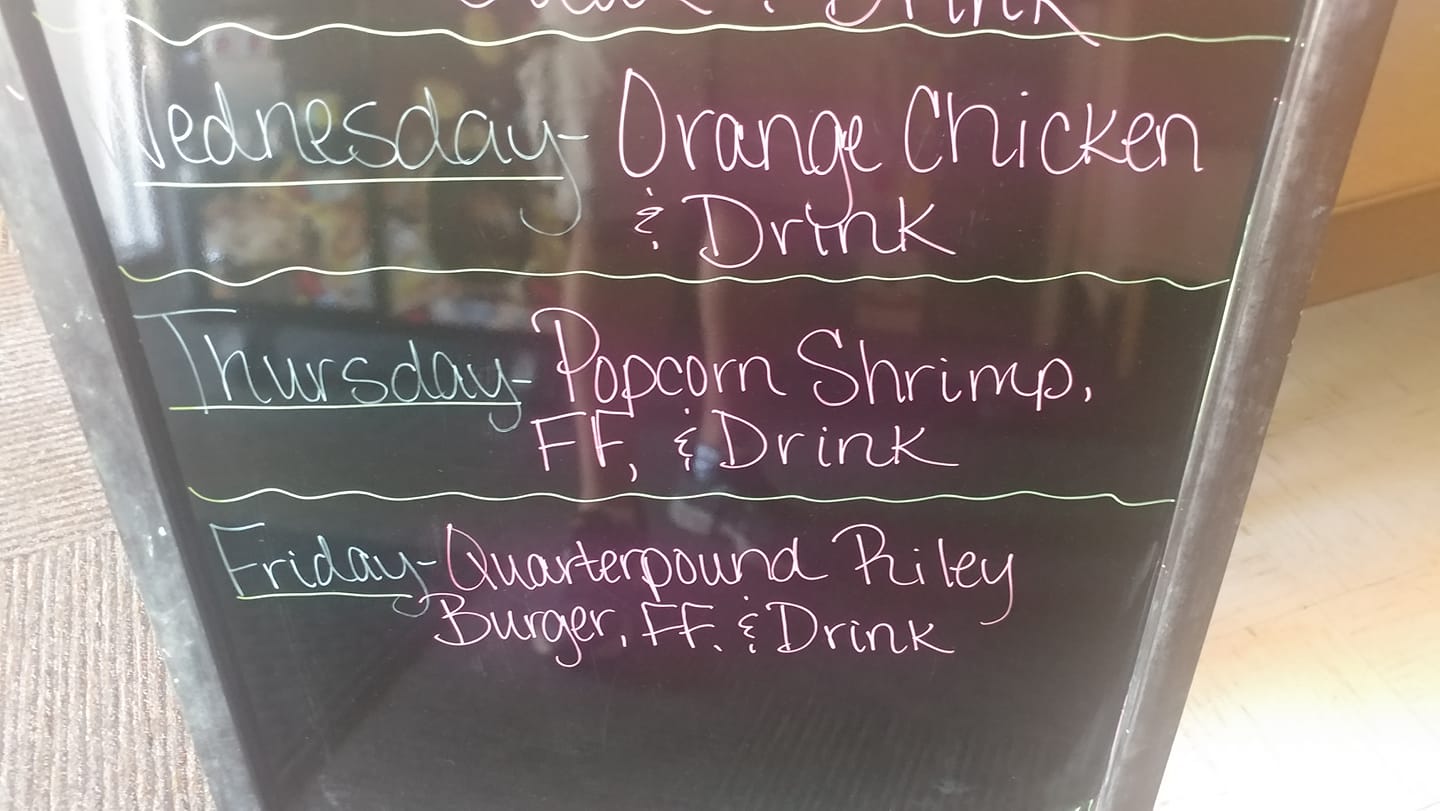 & Drink
Wednesday- Orange Chicken
& Drink
Thursday- Popcorn Shrimp,
FF, & Drink
Friday- Quarterpound Riley
Burger, FF, & Drink